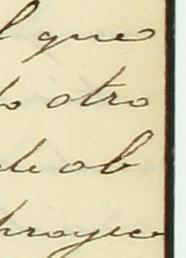 l que
o otro
de ob
proyec